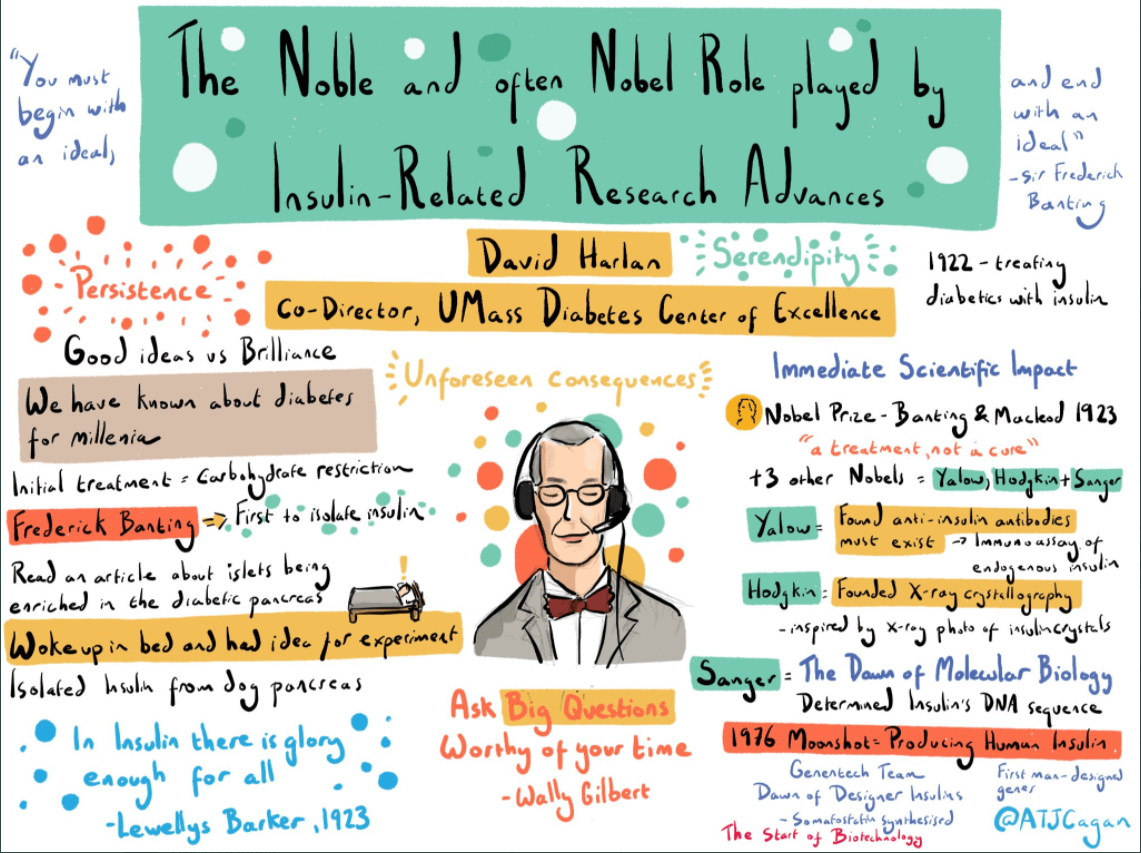 The Noble and often Nobel Role played by
Insulin-Related Research Advances
"You must
begin with
an ideal,
and end
with an
ideal"
-Sir Frederick
Banting
David Harlan
Co-Director, UMass Diabetes Center of Excellence
Serendipity
Persistence
Good ideas vs Brilliance
We have known about diabetes
for millenia
Initial treatment = Carbohydrate restriction
Frederick Banting ⇒ First to isolate insulin
Read an article about islets being
enriched in the diabetic pancreas
!
Woke up in bed and had idea for experiment
Isolated Insulin from dog pancreas
In Insulin there is glory
enough for all
-Lewellys Barker, 1923
Unforeseen Consequences
Ask Big Questions
Worthy of your time
-Wally Gilbert
1922 - treating
diabetics with insulin
Immediate Scientific Impact
Nobel Prize - Banting & Macleod 1923
"a treatment, not a cure"
+3 other Nobels = Yalow, Hodgkin + Sanger
Yalow = Found anti-insulin antibodies
must exist → Immunoassay of
endogenous insulin
Hodgkin = Founded X-ray crystallography
-inspired by X-ray photo of insulin crystals
Sanger = The Dawn of Molecular Biology
Determined Insulin's DNA sequence
1976 Moonshot = Producing Human Insulin
Genentech Team
Dawn of Designer Insulins
-Somatostatin synthesised
The Start of Biotechnology
First man-designed
genes
@ATJCagan